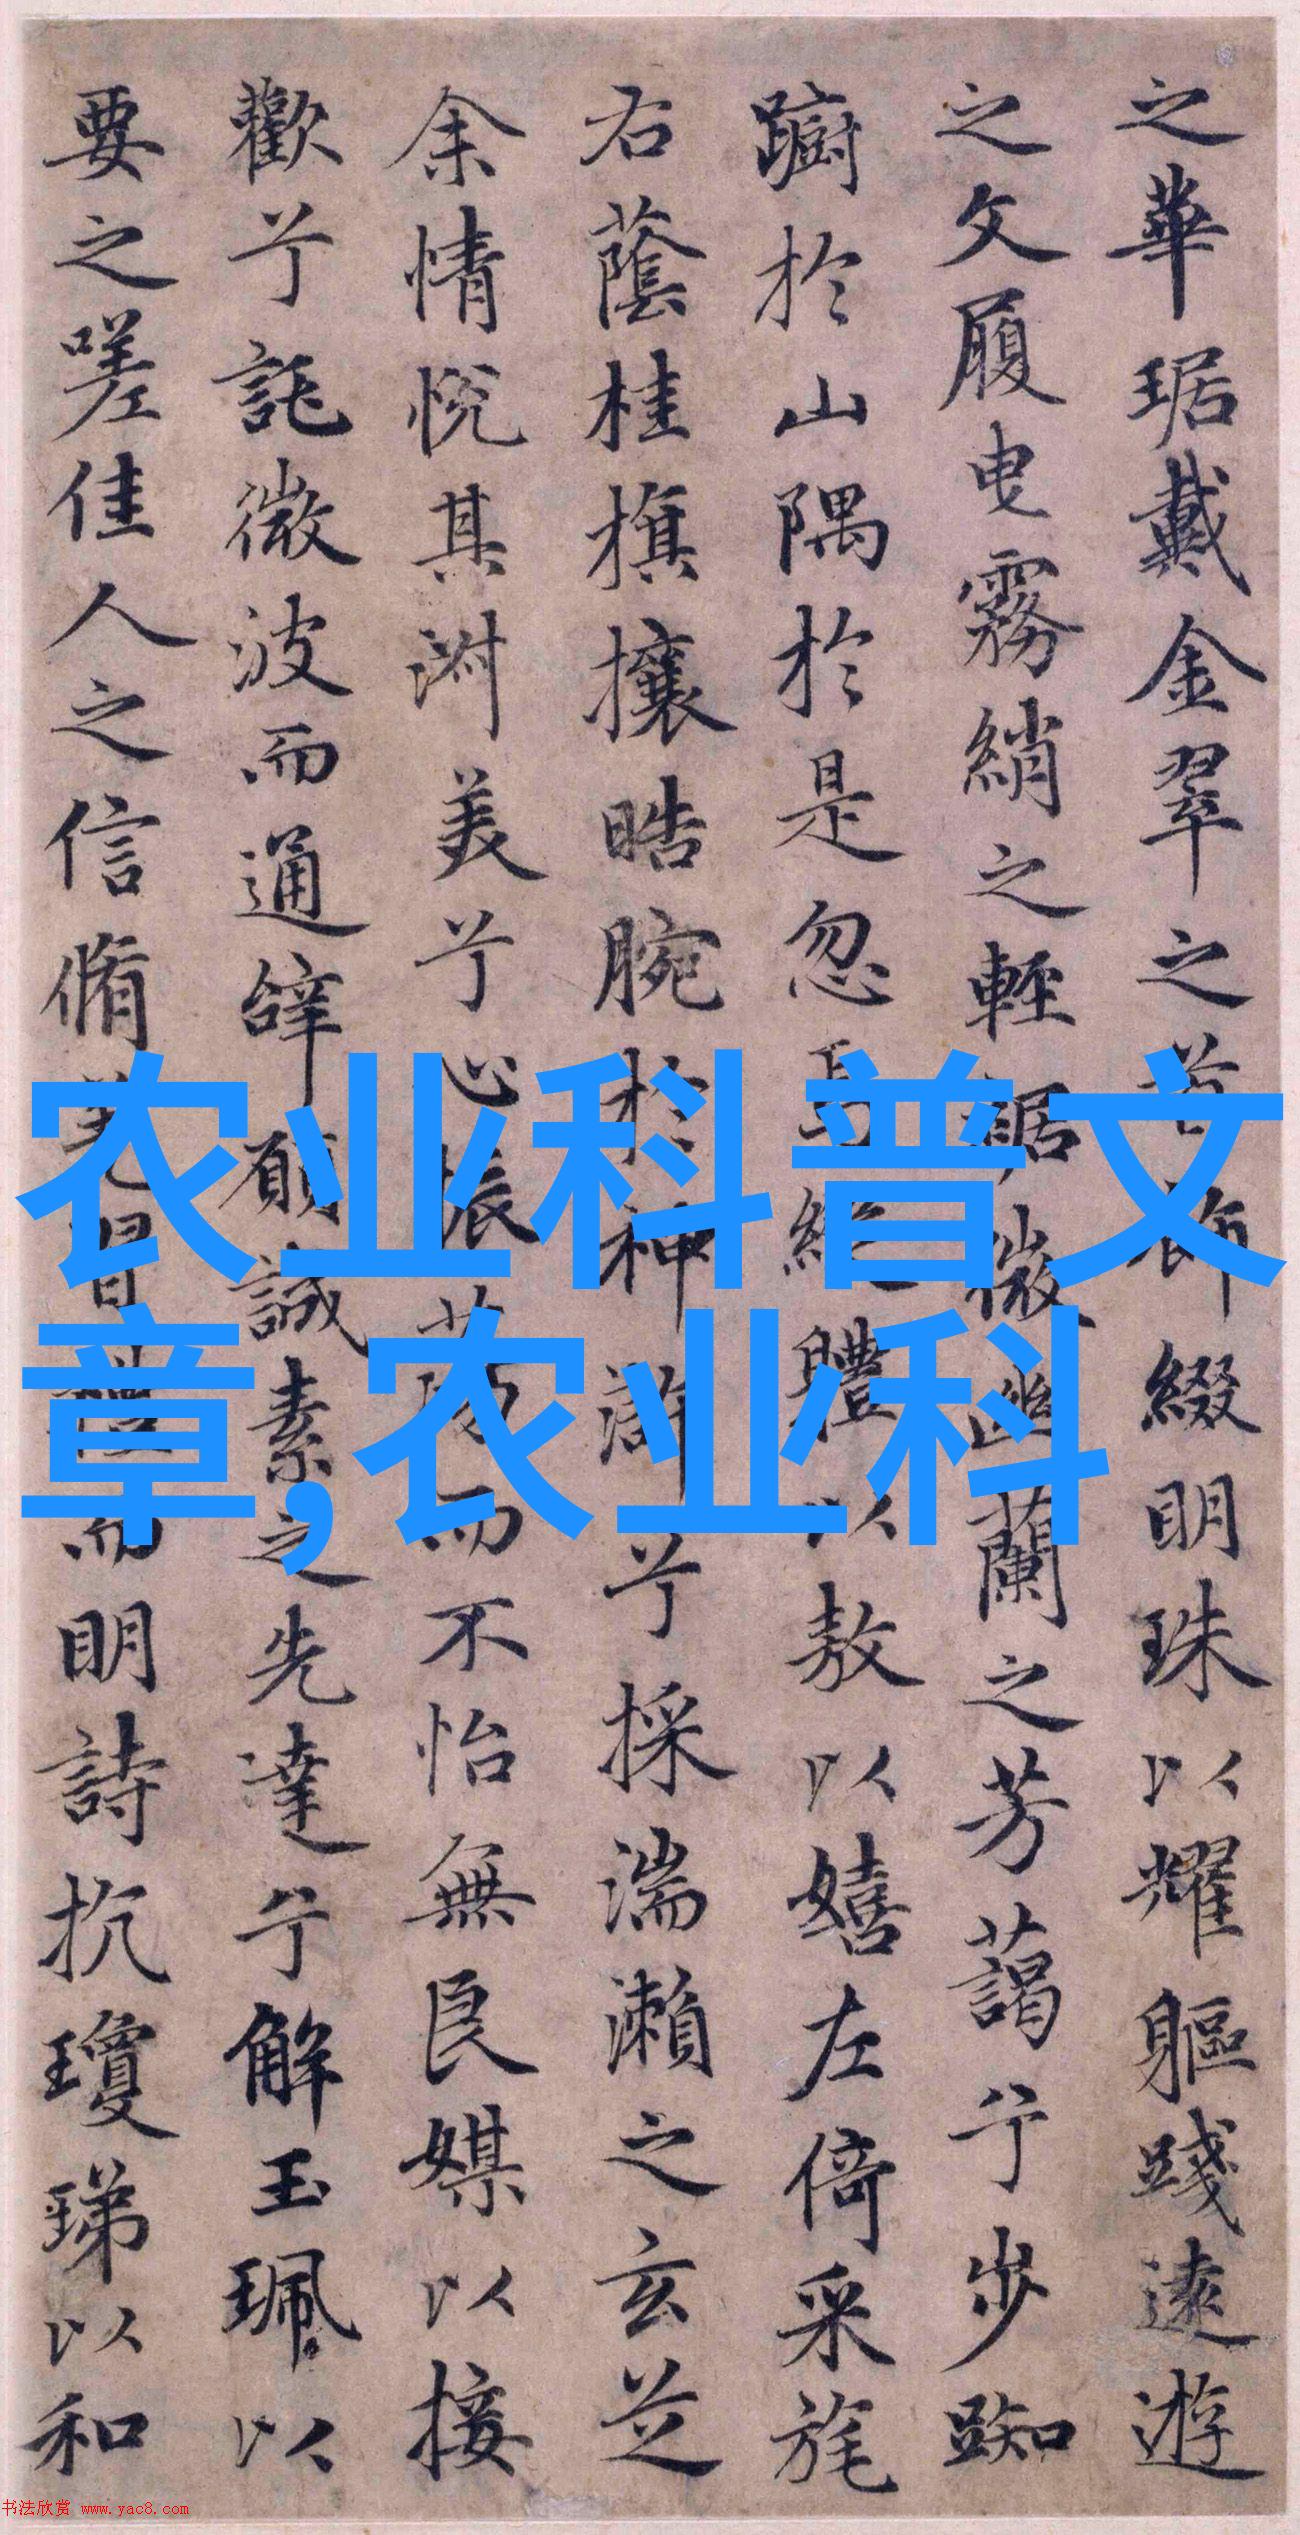 之華琚戴金翠之首飾綴明珠以耀軀踐遠遊
之文履曳霧綃之輕裾微幽蘭之芳藹兮步踟
躕於山隅於是忽焉縱體以敖以嬉左倚采旄
右蔭桂旗攘皓腕於神滸兮採湍瀨之玄芝
余情悅其淑美兮心振蕩而不怡無良媒以接
歡兮託微波而通辭願誠素之先達兮解玉珮以
要之嗟佳人之信脩羌習禮而明詩抗瓊珶以和
农业科普文
章,农业科
书法欣赏 www.yac8.com